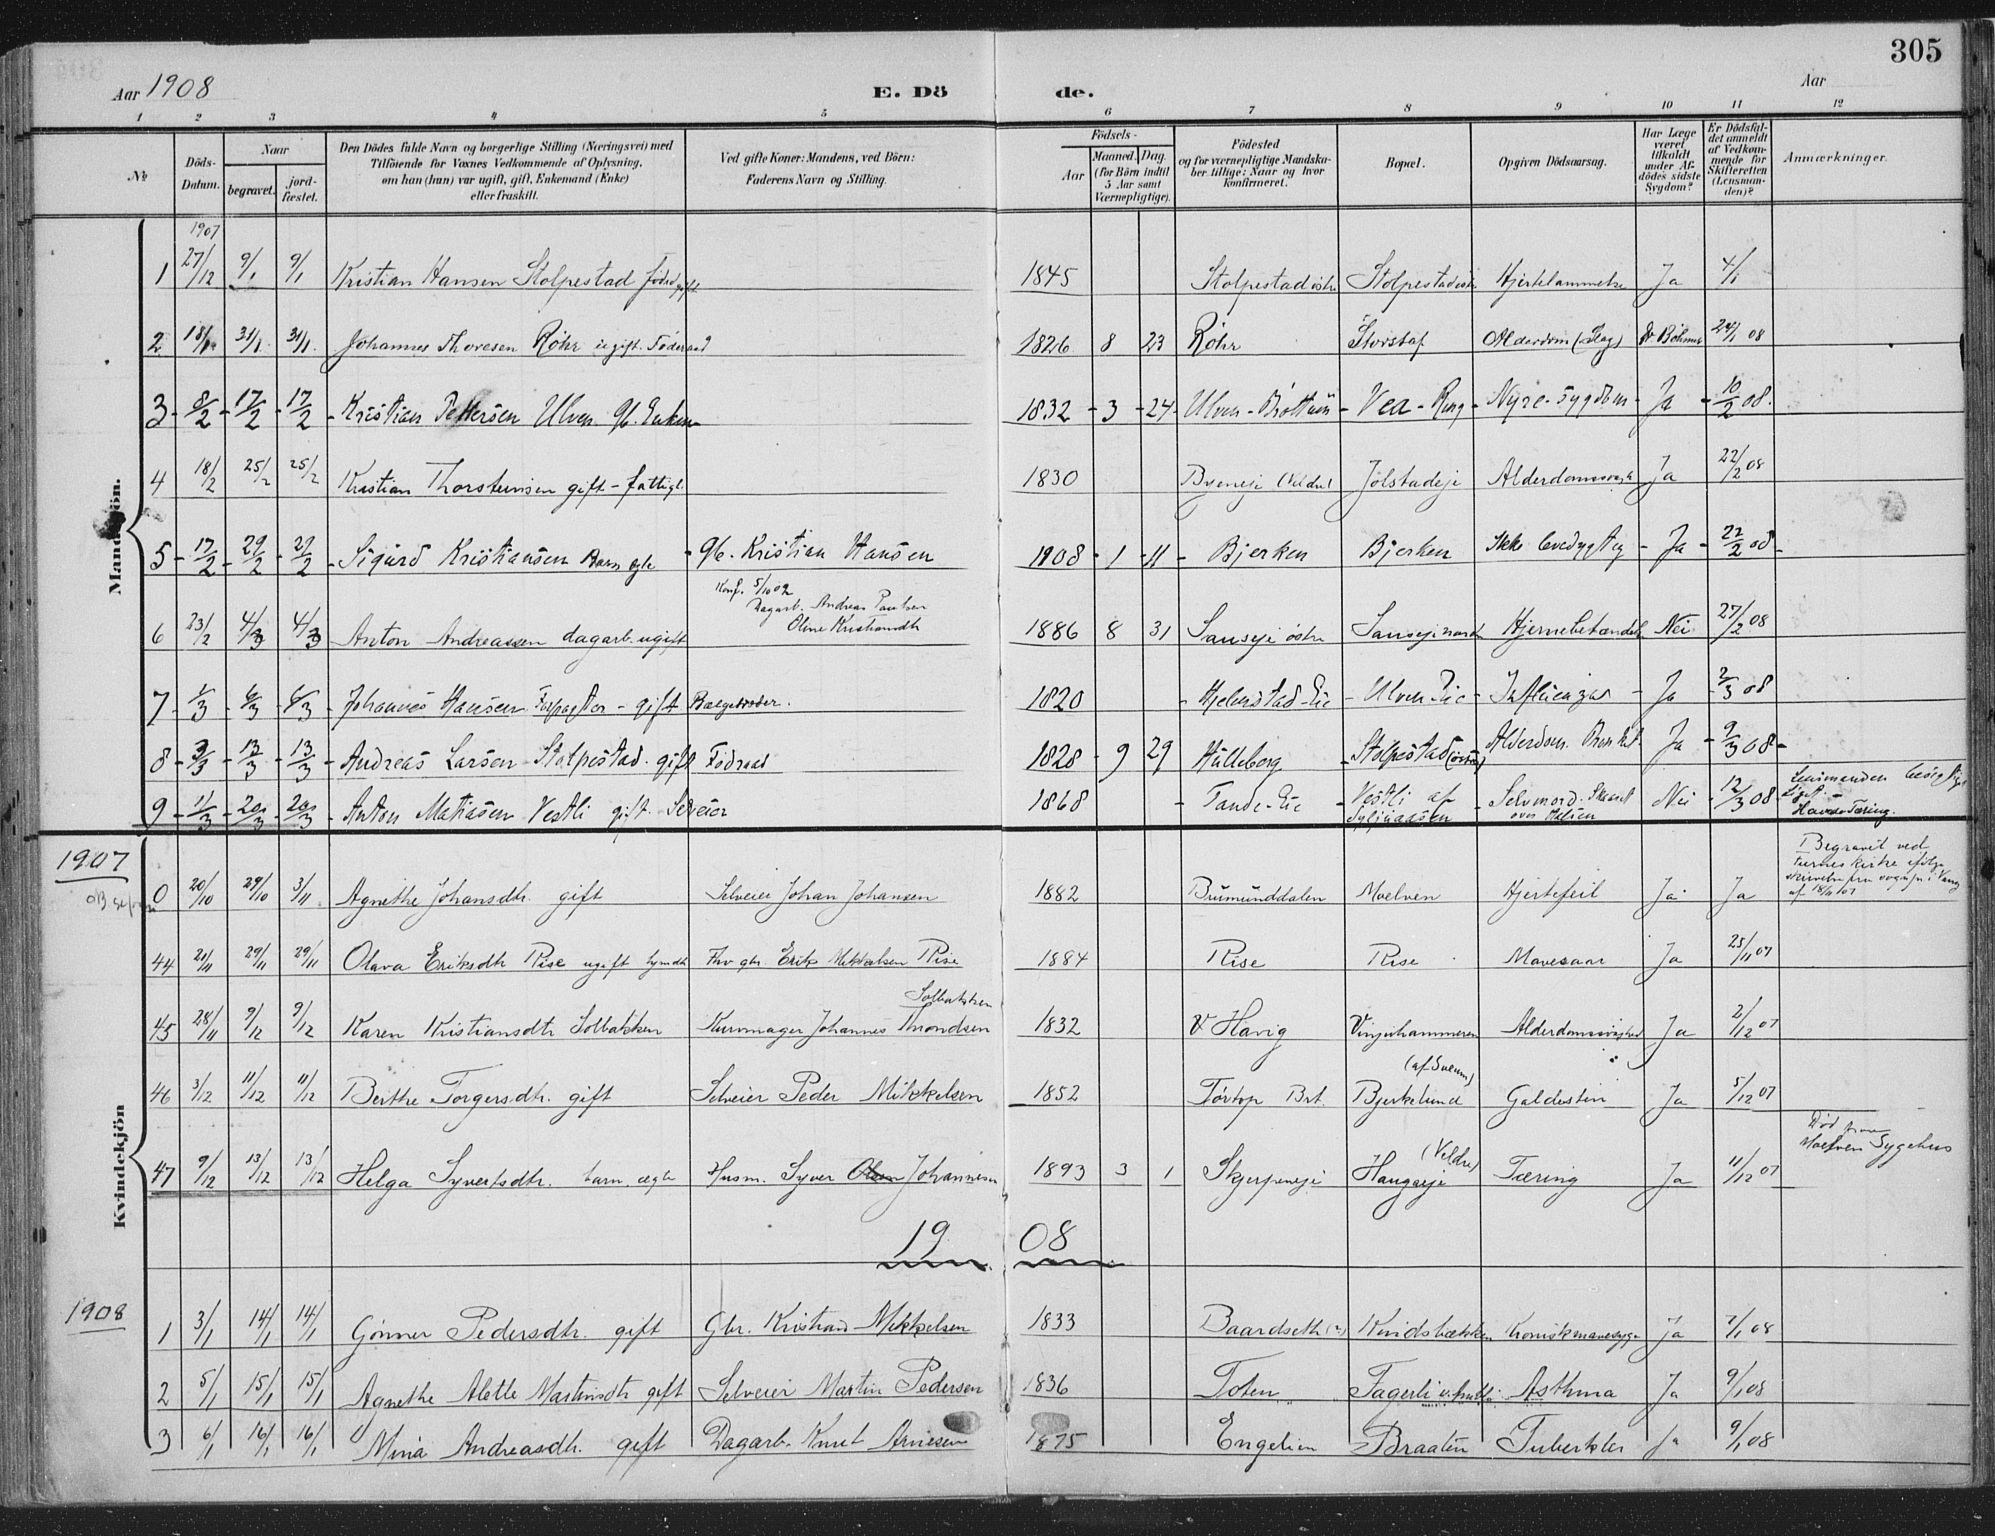 305
Aar 1908 E. Dö de. Aar
1 2 3 4 5 6 7 8 9 10 11 12
№ Döds-Datum. Naar begravet. jord-fæstet. Den Dödes fulde Navn og borgerlige Stilling (Næringsvei) med Tilföiende for Voxnes Vedkommende af Oplysning, om han (hun) var ugift, gift, Enkemand (Enke) eller fraskilt. Ved gifte Koner: Mandens, ved Börn: Faderens Navn og Stilling. Födsels- Aar Maaned. Dag. (for Börn indtil 5 Aar samt Værnepligtige). Födested og for værnepligtige Mandskaber tillige: Naar og hvor konfirmeret. Bopæl. Opgiven Dödsaarsag. Har Læge været tilkaldt under Afdödes sidste Sygdom? Er Dödsfaldet anmeldt af Vedkommende for Skifteretten (Lensmanden)? Anmærkninger.
Mandkjön.
1907
1 27/12 9/1 9/1 Kristian Hansen Stolpestad gift 1845 Stolpestad östre Stolpestad Hjertelammelse Ja 4/1
2 18/1 31/1 31/1 Johannes Thoresen Röhr ugift 1826 8 23 Röhr Storstaf Alderdom (Slag) 24/1 08
3 8/2 17/2 17/2 Kristian Pettersen Ulven Gb. Enkem 1832 3 24 Ulven - Brøttum Vea - Ring Nyre-sygdom Ja 10/2 08
4 18/2 25/2 25/2 Kristian Thorsteinsen gift - fattigl. 1830 Jölstadeje Ja 22/2 08
5 17/2 29/2 29/2 Sigurd Kristiansen Barn ægte Gb. Kristian Hansen 1908 1 11 Bjerken Bjerken Ikke Ja 22/2 08
Konf. 5/10 02
Dagarb. Andreas Paulsen
Oline Kristiansdtr
6 23/2 4/3 4/3 Anton Andreassen dagarb. ugift 1886 8 31 Hjernebetændelse Nei 27/2 08
7 1/3 6/3 6/3 Johannes Hansen Forpagter - gift 1820 Hjelmstad-Eie Ulven Eie Influenza Ja 2/3 08
8 9/3 13/3 13/3 Andreas Larsen Stolpestad gift Födraad 1828 9 29 Hulleberg Stolpestad (östre) Alderdom Ja 9/3 08
9 11/3 20/3 20/3 Anton Matiasen Vestli gift Selveier 1868 Tande-Eie Vestli af Selvmord Skaaret over Nei 12/3 08 Lensmanden
Tæring.
Kvindekjön
1907
0 20/10 29/10 3/11 Agnethe Johansdtr. gift Selveier Johan Johansen 1882 Brumunddalen Moelven Hjertefeil Ja Ja Begravet ved Furnes kirke ifölge skrivelse fra sogneprt i Vang af 18/11 07
44 21/11 29/11 29/11 Olava Eriksdtr Rise ugift Gbr. Erik Mikkelsen Rise 1884 Rise Rise Mavesaar Ja 25/11 07
Solbakken
45 28/11 9/12 9/12 Karen Kristiansdtr Solbakken Kurvmager Johannes Throndsen 1832 V Havig Vingerhammeren Alderdomssvaghed Ja 2/12 07
(af Sveum)
46 3/12 11/12 11/12 Berthe Torgersdtr. gift Selveier Peder Mikkelsen 1852 Törtop Brt. Bjerkelund Galdestein Ja 5/12 07
Död
Moelven Sygehus
47 9/12 13/12 13/12 Helga Syvertsdtr. barn ægte Husm. Syver Olsen Johannesen 1893 3 1 Skjerpeneje (Veldre) Haugseje Tæring Ja 11/12 07
19 08
1908
1 3/1 14/1 14/1 Gönner Pedersdtr. gift Gbr. Kristian Mikkelsen 1833 Baardseth Kvidsbækken Kronisk mavesyge Ja 7/1 08
2 5/1 15/1 15/1 Agnethe Alette Martinsdtr gift Selveier Martin Pedersen 1836 Toten Fagerli Asthma Ja 9/1 08
3 6/1 16/1 16/1 Mina Andreasdtr. gift Dagarb. Knut Arnesen 1875 Engelien Braaten Tuberkler Ja 9/1 08